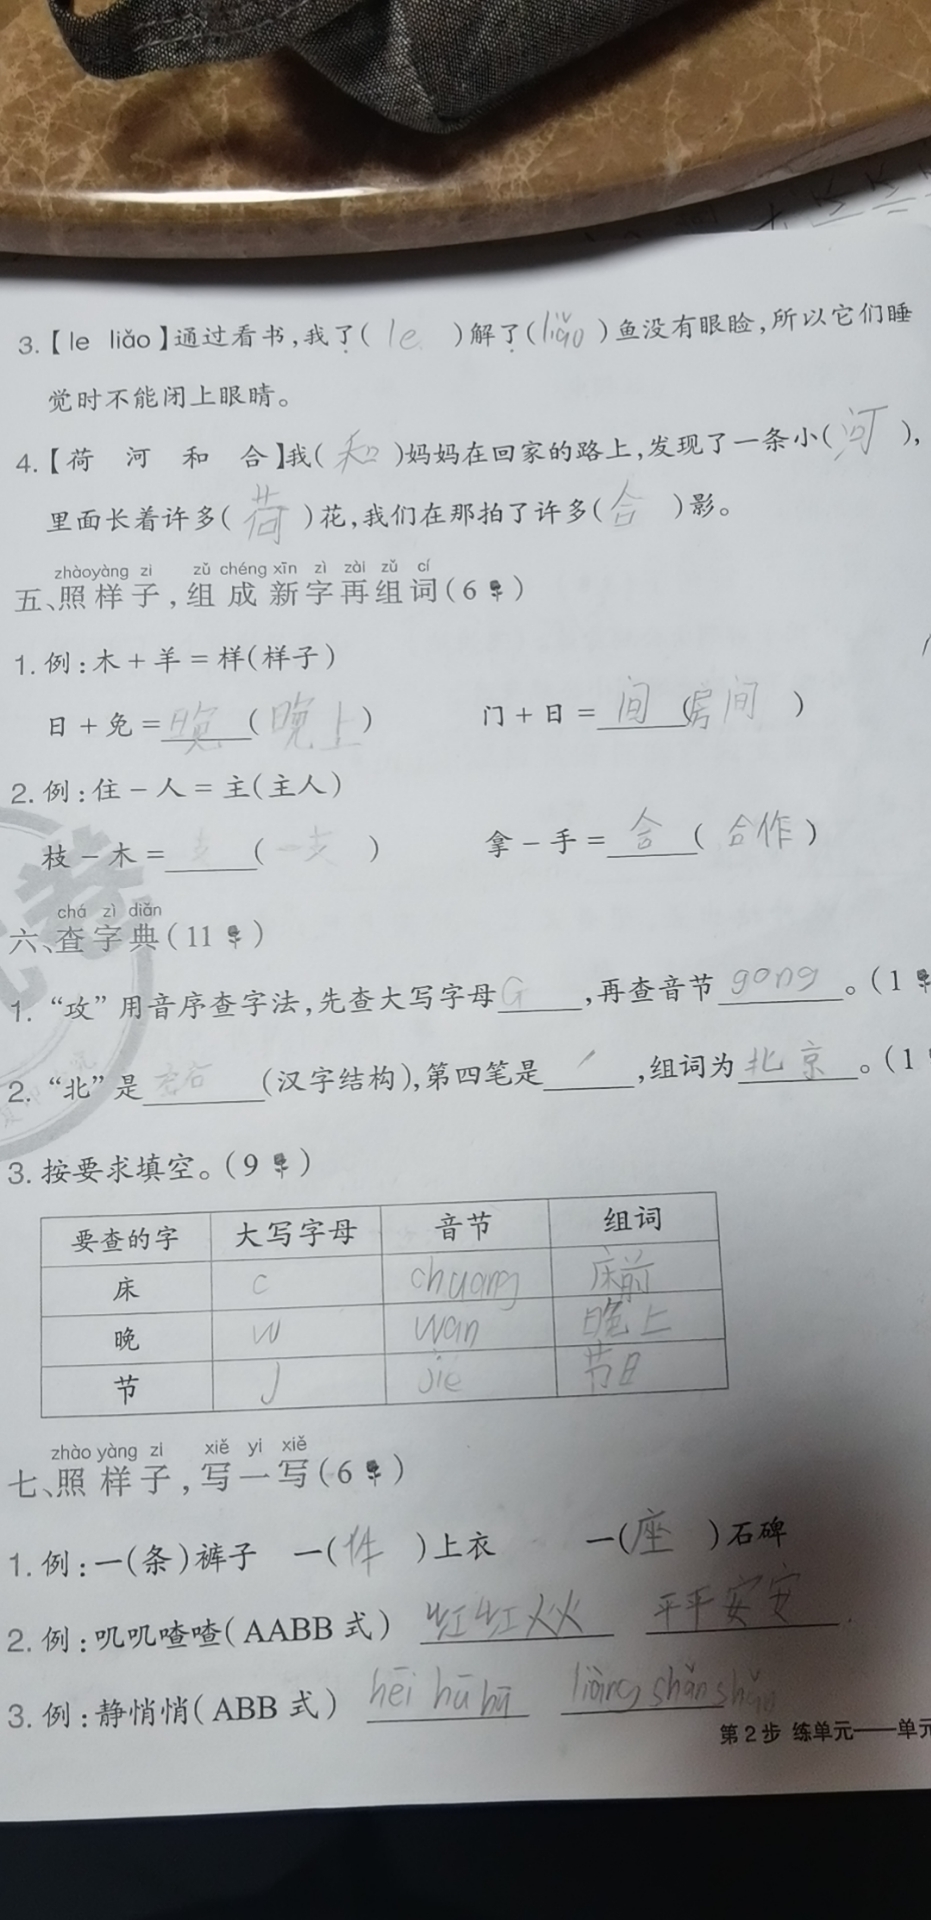 3.【le liǎo】通过看书,我了( le )解了(liǎo)鱼没有眼睑,所以它们睡
觉时不能闭上眼睛。
4.【荷 河 和 合】我( 和 )妈妈在回家的路上,发现了一条小( 河 ),
里面长着许多( 荷 )花,我们在那拍了许多( 合 )影。
zhàoyàng zi zǔ chéng xīn zì zài zǔ cí
五、照样子,组成新字再组词(6 )
1. 例:木+羊=样(样子)
日+免=晚(晚上) 门+日=间(房间)
2. 例:住-人=主(主人)
枝-木=支(一支) 拿-手=合(合作)
chá zì diǎn
六、查字典(11 )
1. “攻”用音序查字法,先查大写字母G,再查音节gong。(1
2. “北”是 (汉字结构),第四笔是㇒,组词为北京。(1
3. 按要求填空。(9 )
要查的字 大写字母 音节 组词
床 C chuang 床前
晚 W wan 晚上
节 J jie 节日
zhào yàng zi xiě yi xiě
七、照样子,写一写(6 )
1. 例:一(条)裤子 一(件)上衣 一(座)石碑
2. 例:叽叽喳喳(AABB 式) 红红火火 平平安安
3. 例:静悄悄(ABB 式) hēi hū hū liàng shǎn shǎn
第2步 练单元——单元